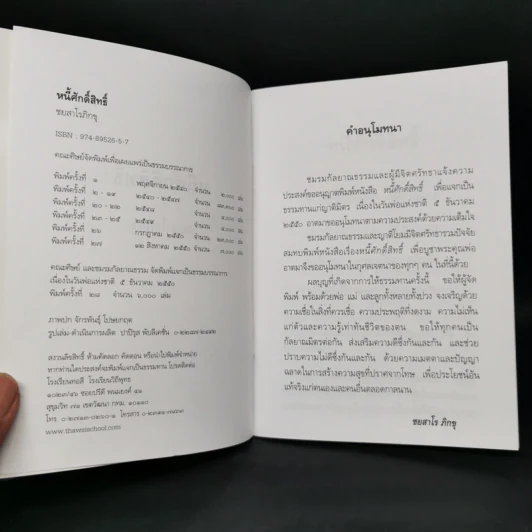 หนี้ศักดิ์สิทธิ์
ชยสาโรภิกขุ
ISBN : 974-89526-5-7
คณะศิษย์จัดพิมพ์เพื่อเผยแพร่เป็นธรรมบรรณาการ
พิมพ์ครั้งที่ ๑ พฤศจิกายน ๒๕๔๐ จำนวน ๒,๐๐๐ เล่ม
พิมพ์ครั้งที่ ๒ - ๑๙ ๒๕๔๐ - ๒๕๔๗ จำนวน เล่ม
พิมพ์ครั้งที่ ๒๐ - ๒๒ ๒๕๔๘ จำนวน เล่ม
พิมพ์ครั้งที่ ๒๓ - ๒๕ ๒๕๔๙ จำนวน เล่ม
พิมพ์ครั้งที่ ๒๖ กรกฎาคม ๒๕๕๐ จำนวน เล่ม
พิมพ์ครั้งที่ ๒๗ ๑๒ สิงหาคม ๒๕๕๐ จำนวน เล่ม
คณะศิษย์ และชมรมกัลยาณธรรม จัดพิมพ์แจกเป็นธรรมบรรณาการ
เนื่องในวันพ่อแห่งชาติ ๕ ธันวาคม ๒๕๕๐
พิมพ์ครั้งที่ ๒๘ จำนวน ๖,๐๐๐ เล่ม
ภาพปก จักรพันธุ์ โปษยกฤต
รูปเล่ม-ดำเนินการผลิต ปาปิรุส พับลิเคชั่น
สงวนลิขสิทธิ์ ห้ามคัดลอก ตัดตอน หรือนำไปพิมพ์จำหน่าย
หากท่านใดประสงค์จะพิมพ์แจกเป็นธรรมทาน โปรดติดต่อ
โรงเรียนทอสี โรงเรียนวิถีพุทธ
๑๐๒๓/๔๖ ซอยปรีดี พนมยงค์ ๔๑
สุขุมวิท ๗๑ เขตวัฒนา กทม. ๑๐๑๑๐
โทร. ๐-๒๗๑๓-๐๒๖๐-๑ โทรสาร
www.thawsischool.com
คำอนุโมทนา
ชมรมกัลยาณธรรมและผู้มีจิตศรัทธาแจ้งความ
ประสงค์ขออนุญาตพิมพ์หนังสือ หนี้ศักดิ์สิทธิ์ เพื่อแจกเป็น
ธรรมทานแก่ญาติมิตร เนื่องในวันพ่อแห่งชาติ ๕ ธันวาคม
๒๕๕๐ อาตมาขออนุโมทนาตามความประสงค์ด้วยความเต็มใจ
ชมรมกัลยาณธรรมและญาติโยมมีจิตศรัทธารวมปัจจัย
สมทบพิมพ์หนังสือเรื่องหนี้ศักดิ์สิทธิ์ เพื่อบูชาพระคุณพ่อ
อาตมาจึงขออนุโมทนาในกุศลเจตนาของทุกๆ คน ในที่นี้ด้วย
ผลบุญที่เกิดจากการให้ธรรมทานครั้งนี้ ขอให้ผู้จัด
พิมพ์ พร้อมด้วยพ่อ แม่ และลูกทั้งหลายทั้งปวง จงเจริญด้วย
ความเชื่อในสิ่งที่ควรเชื่อ ความประพฤติที่งดงาม ความไม่เห็น
แก่ตัวและความรู้เท่าทันชีวิตของตน ขอให้ทุกคนเป็น
กัลยาณมิตรต่อกัน ส่งเสริมความดีซึ่งกันและกัน และช่วย
ปราบความไม่ดีซึ่งกันและกัน ด้วยความเมตตาและปัญญา
ฉลาดในการสร้างความสุขที่ปราศจากโทษ เพื่อประโยชน์อัน
แท้จริงแก่ตนเองและคนอื่นตลอดกาลนาน
ชยสาโร ภิกขุ